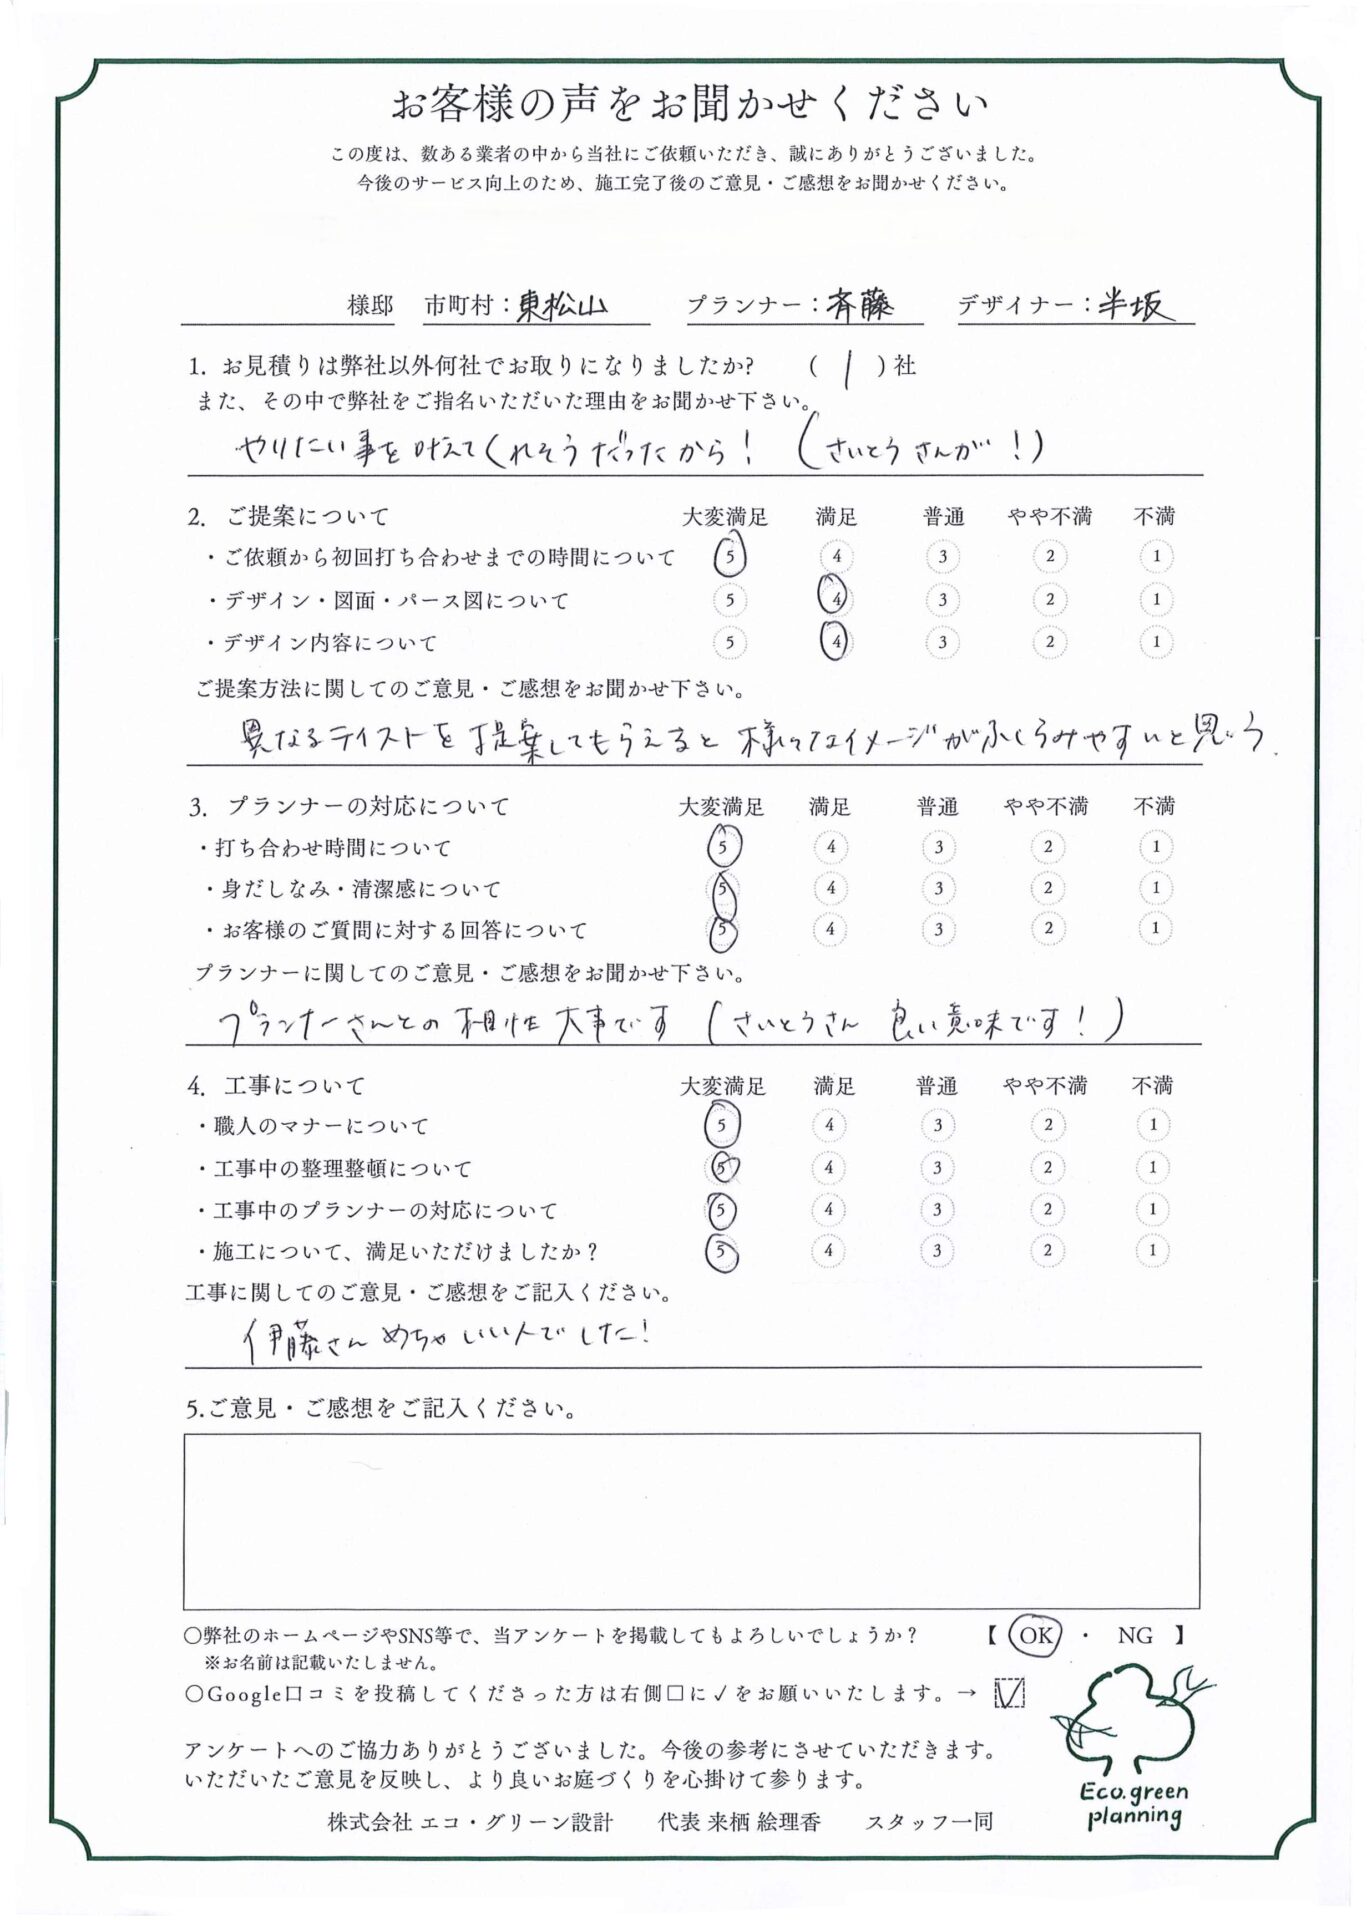 お客様の声をお聞かせください
この度は、数ある業者の中から当社にご依頼いただき、誠にありがとうございました。
今後のサービス向上のため、施工完了後のご意見・ご感想をお聞かせください。
様邸 市町村：東松山 プランナー：斉藤 デザイナー：半坂
1. お見積りは弊社以外何社でお取りになりましたか? ( 1 ) 社
また、その中で弊社をご指名いただいた理由をお聞かせ下さい。
やりたい事を叶えてくれそうだったから！（さいとうさんが！）
2. ご提案について 大変満足 満足 普通 やや不満 不満
・ご依頼から初回打ち合わせまでの時間について 5 4 3 2 1
・デザイン・図面・パース図について 5 4 3 2 1
・デザイン内容について 5 4 3 2 1
ご提案方法に関してのご意見・ご感想をお聞かせ下さい。
異なるテイストを提案してもらえると様々なイメージがふくらみやすいと思う.
3. プランナーの対応について 大変満足 満足 普通 やや不満 不満
・打ち合わせ時間について 5 4 3 2 1
・身だしなみ・清潔感について 5 4 3 2 1
・お客様のご質問に対する回答について 5 4 3 2 1
プランナーに関してのご意見・ご感想をお聞かせ下さい。
プランナーさんとの相性大事です（さいとうさん 良い意味です！）
4. 工事について 大変満足 満足 普通 やや不満 不満
・職人のマナーについて 5 4 3 2 1
・工事中の整理整頓について 5 4 3 2 1
・工事中のプランナーの対応について 5 4 3 2 1
・施工について、満足いただけましたか？ 5 4 3 2 1
工事に関してのご意見・ご感想をご記入ください。
伊藤さんめちゃいい人でした！
5.ご意見・ご感想をご記入ください。
〇弊社のホームページやSNS等で、当アンケートを掲載してもよろしいでしょうか？ 【 OK ・ NG 】
※お名前は記載いたしません。
〇Google口コミを投稿してくださった方は右側□に✓をお願いいたします。→ ✓
アンケートへのご協力ありがとうございました。今後の参考にさせていただきます。
いただいたご意見を反映し、より良いお庭づくりを心掛けて参ります。
Eco.green
planning
株式会社 エコ・グリーン設計 代表 来栖 絵理香 スタッフ一同